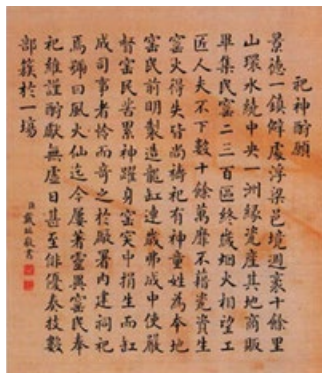 祀神酬願
景德一鎮僻處浮梁邑境週袤十餘里
山環水繞中央一洲緣瓷產其地商販
畢集民窰二三百區終歲烟火相望工
匠人夫不下數十餘萬靡不藉瓷資生
窰火得失皆尚禱祀有神童姓為本地
窰民前明製造龍缸連歲弗成中使嚴
督窰民苦累神躍身窰突中捐生而缸
成司事者怜而奇之於厰署內建祠祀
焉號曰風火仙迄今屢著靈異窰民奉
祀維謹酬獻無虛日甚至俳優奏技數
部簇於一場
臣戴臨敬書